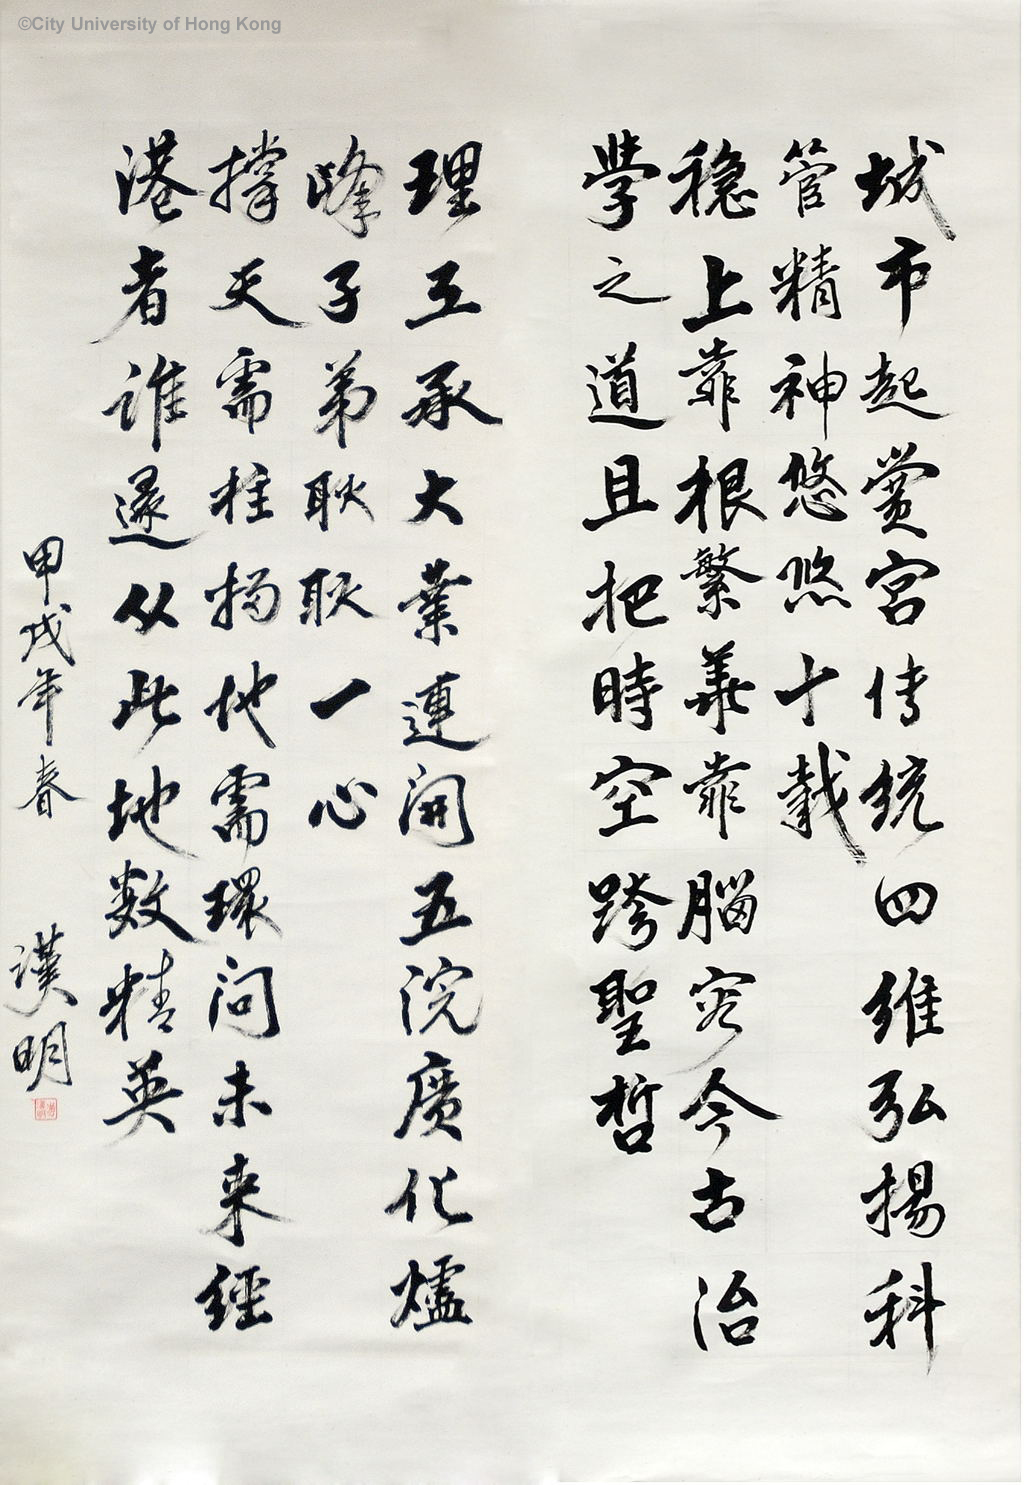 ©City University of Hong Kong
城市起黌宮傳統四維弘揚科
管精神悠悠十載
穩上靠根繁華靠腦容今古治
學之道且把時空跨聖哲
理工承大業連開五院廣化爐
峰子弟耿耿一心
撐天需柱揚地需環問未来經
港者誰遂从此地数精英
甲戌年春 漢明